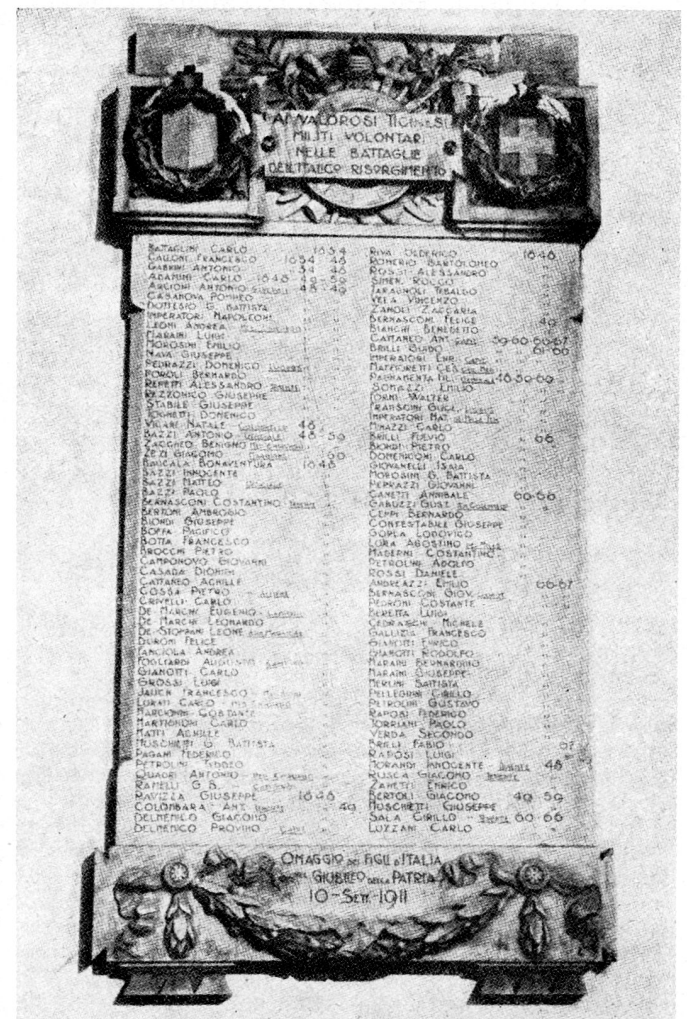 AI VALOROSI TICINESI
MILITI VOLONTARI
NELLE BATTAGLIE
DELL'ITALICO RISORGIMENTO
BATTAGLINI CARLO 1834
CALLONI FRANCESCO 1834 48
GABRINI ANTONIO 34 48
ADAMINI CARLO 1848 49-59
ARCIONI ANTONIO 48-49
CASANOVA POMPEO
DOTTESIO G. BATTISTA
IMPERATORI NAPOLEONE
LEONI ANDREA
MARAINI LUIGI
MOROSINI EMILIO
NAVA GIUSEPPE
PEDRAZZI DOMENICO
POROLI BERNARDO
REPETTI ALESSANDRO TENENTE
REZZONICO GIUSEPPE
STABILE GIUSEPPE
TOGNETTI DOMENICO
VICARI NATALE COLONNELLO 48
BAZZI ANTONIO 48-59
ZACCHEO BENIGNO
ZEZI GIACOMO 160
BACCALA BONAVENTURA 1848
BAZZI INNOCENTE
BAZZI MATTEO
BAZZI PAOLO
BERNASCONI COSTANTINO
BERTONI AMBROGIO
BIONDI GIUSEPPE
BOFFA PACIFICO
BOTTA FRANCESCO
BROCCHI PIETRO
CAMPONOVO GIOVANNI
CASADA DIONIGI
CATTANEO ACHILLE
COSSA PIETRO
CRIVELLI CARLO
DE MARCHI EUGENIO
DE MARCHI LEONARDO
DE STOPPANI LEONE
DURONI FELICE
FANCIOLA ANDREA
FOGLIARDI AUGUSTO
GIANOTTI CARLO
GROSSI LUIGI
JAUCH FRANCESCO
LURATI CARLO
MARCIONNI COSTANTE
MARTIGNONI CARLO
MATTI ACHILLE
MUSCHIETTI G. BATTISTA
PAGANI FEDERICO
PETROLINI
QUADRI ANTONIO
RAMELLI G. B.
RAVIZZA GIUSEPPE 1848
COLOMBARA ANT. 49
DELMENICO GIACOMO
DELMENICO PROVINO
RIVA OLDERICO 1848
ROMERIO BARTOLOMEO
ROSSI ALESSANDRO
SIMEN ROCCO
TARAGNOLI TEBALDO
VELA VINCENZO
ZANOLI ZACCARIA
BERNASCONI FELICE 49
BIANCHI BENEDETTO
CATTANEO ANT. 59-60-66-67
BRILLI GUIDO 61-66
IMPERATORI ENR.
MAFFIORETTI CES.
PAGNAMENTA FIL. 48-59-60
SOMAZZI EMILIO
TORNI WALTER
FRANSCINI GUGL.
IMPERATORI MAT.
MINAZZI CARLO
BRILLI FULVIO 66
BIORDI PIETRO
DOMENIGONI CARLO
GIOVANELLI ISAIA
MOROSINI G. BATTISTA
PEDRAZZI GIOVANNI
CANETTI ANNIBALE 60-66
GABUZZI GIUS.
CEPPI BERNARDO
CONTESTABILE GIUSEPPE
LODOVICO
LURA AGOSTINO
MADERNI COSTANTINO
PETROLINI ADOLFO
ROSSI DANIELE
ANDREAZZI EMILIO 66-67
BERNASCONI GIOV.
PEDRONI COSTANTE
BERETTA LUIGI
CEDRASCHI MICHELE
GALLIZIA FRANCESCO
GIANOTTI ENRICO
GIANOTTI RODOLFO
MARAINI BERNARDINO
MARAINI GIUSEPPE
MERLINI BATTISTA
PELLEGRINI CIRILLO
PETROLINI GUSTAVO
RAPOSI FEDERICO
TORRIANI PAOLO
VERDA SECONDO
BRILLI FABIO 67
RAPOSI LUIGI
MORANDI INNOCENTE TENENTE 48
RUSCA GIACOMO TENENTE
ZANETTI ENRICO
BERTOLI GIACOMO 49 59
MUSCHIETTI GIUSEPPE
SALA CIRILLO TENENTE 60-66
LUZZANI CARLO
OMAGGIO DEI FIGLI D'ITALIA
NEL GIUBILEO DELLA PATRIA
10-SETT-1911